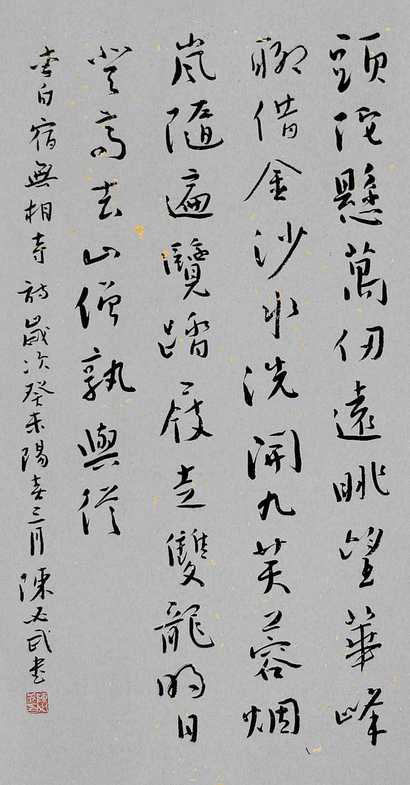 頭陀懸萬仞遠眺望華峰
聊借金沙水洗開九芙蓉烟
嵐隨遍覽踏屐走雙龍明日
登高去山僧孰與從
李白宿無相寺詩歲次癸未陽春三月陳必武書